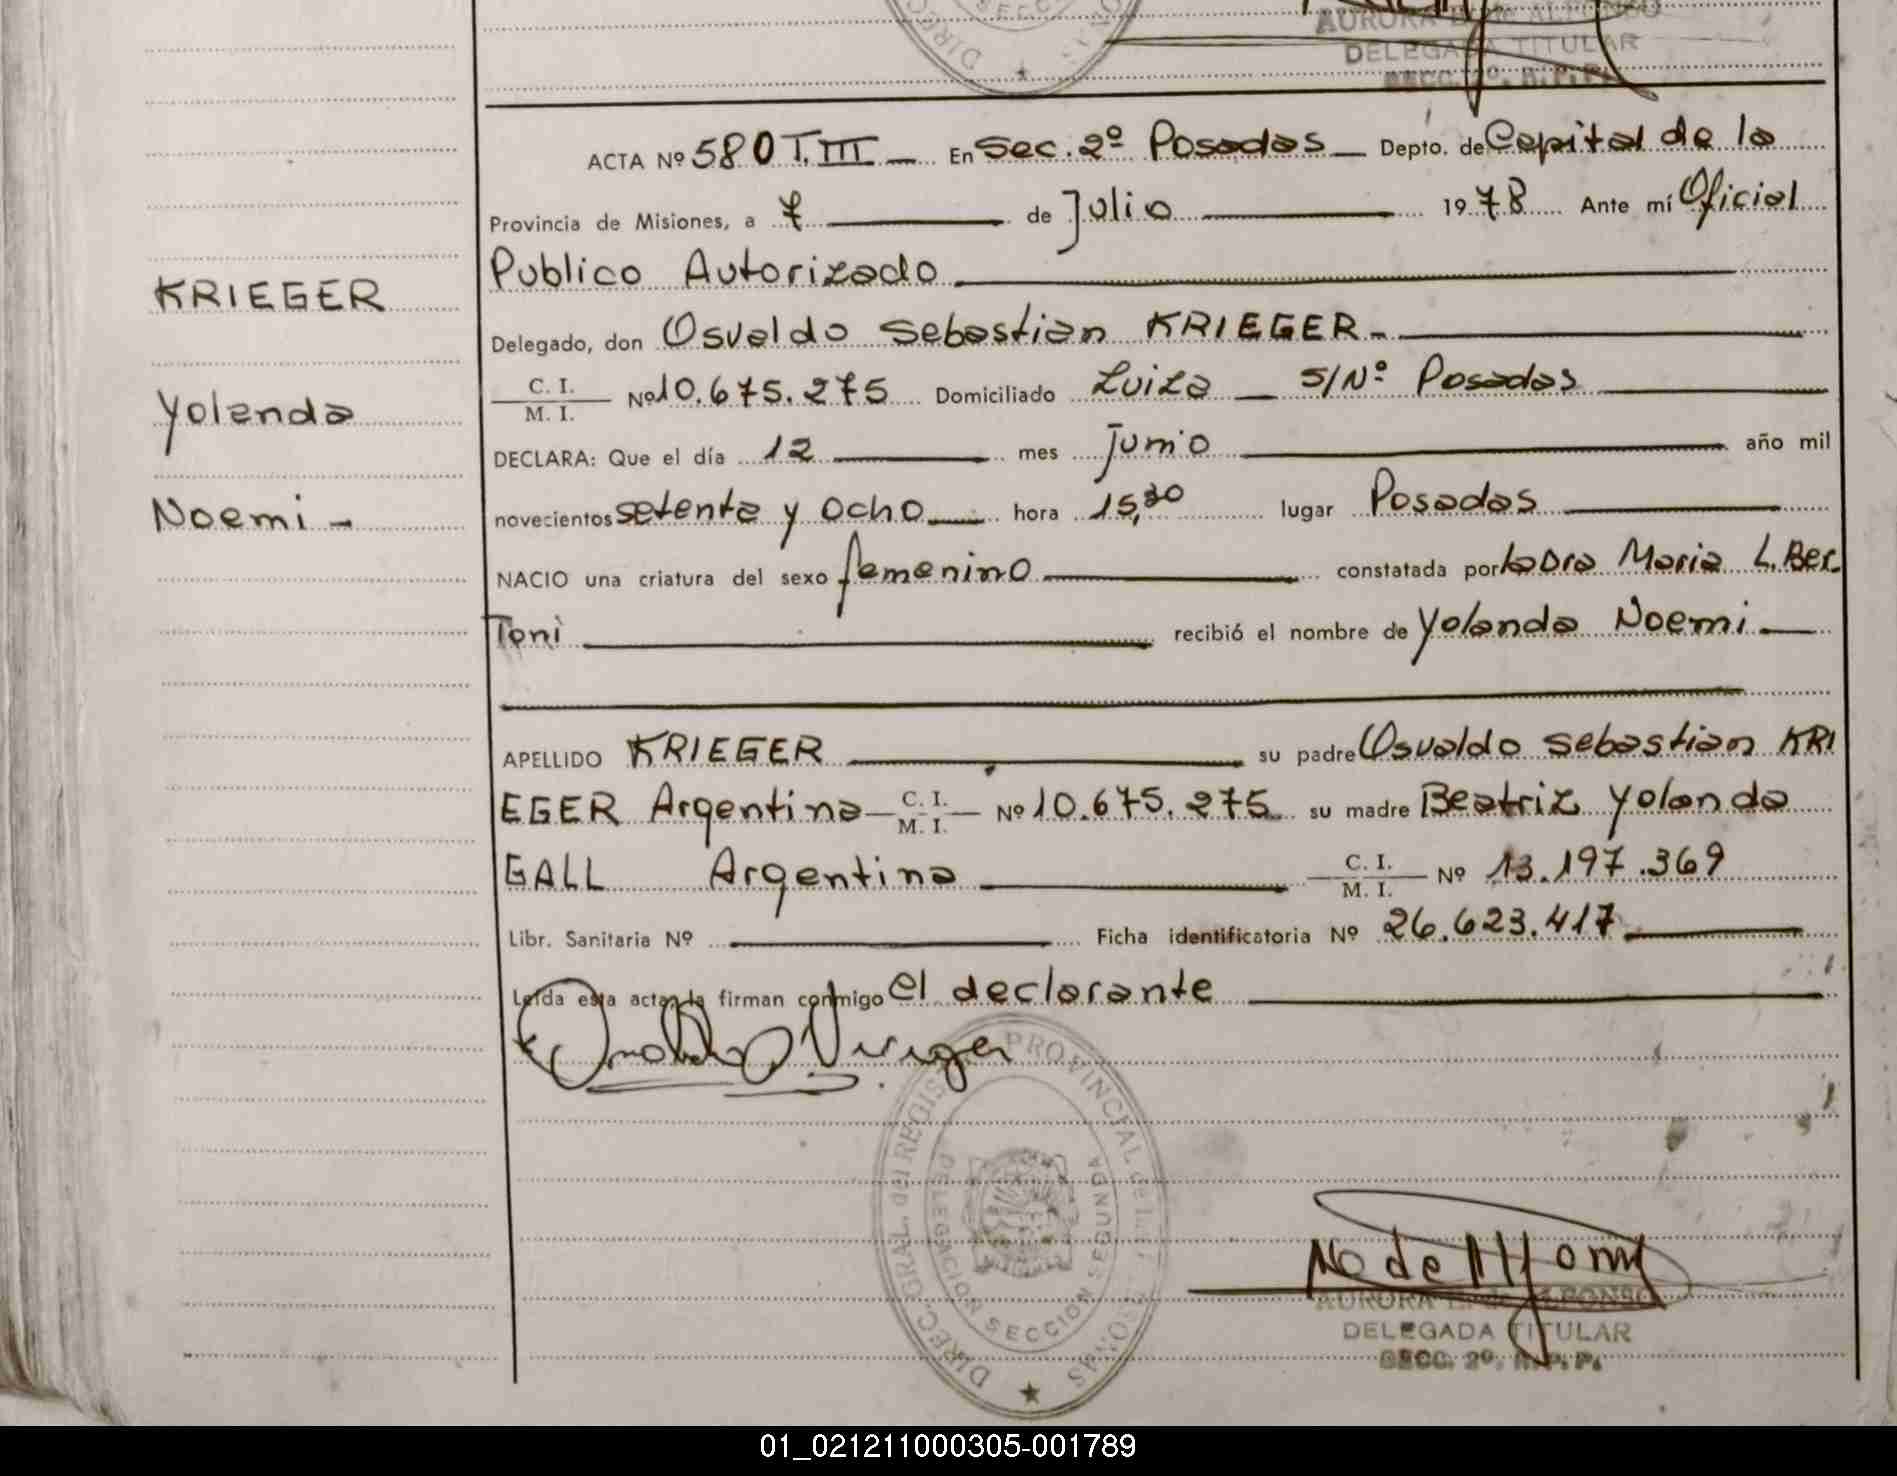 DIREC.
SECC
AS
AURORA B. de ALFONSO
DELEGADA TITULAR
SECC. 2º. R.P.P.
ACTA Nº 580 T.III En Sec. 2º Posadas Depto. de Capital de la
Provincia de Misiones, a 7 de Julio 1978 Ante mí Oficial
Publico Autorizado
Delegado, don Osvaldo Sebastian KRIEGER
C. I.
M. I. Nº 10.675.275 Domiciliado Luiza S/Nº Posadas
DECLARA: Que el día 12 mes junio año mil
novecientos setenta y ocho hora 15,30 lugar Posadas
NACIO una criatura del sexo femenino constatada por la Dra Maria L. Ber
Toni recibió el nombre de Yolanda Noemi
APELLIDO KRIEGER su padre Osvaldo Sebastian KRI
EGER Argentina C. I. M. I. Nº 10.675.275 su madre Beatriz Yolanda
GALL Argentina C. I. M. I. Nº 13.197.369
Libr. Sanitaria Nº Ficha identificatoria Nº 26.623.417
Leída esta acta, la firman conmigo el declarante
KRIEGER
Yolanda
Noemi
DIREC. GRAL. del REGISTRO PROVINCIAL de las PERSONAS
DELEGACION SECCION SEGUNDA
AURORA B. de ALFONSO
DELEGADA TITULAR
SECC. 2º. R.P.P.
01_021211000305-001789